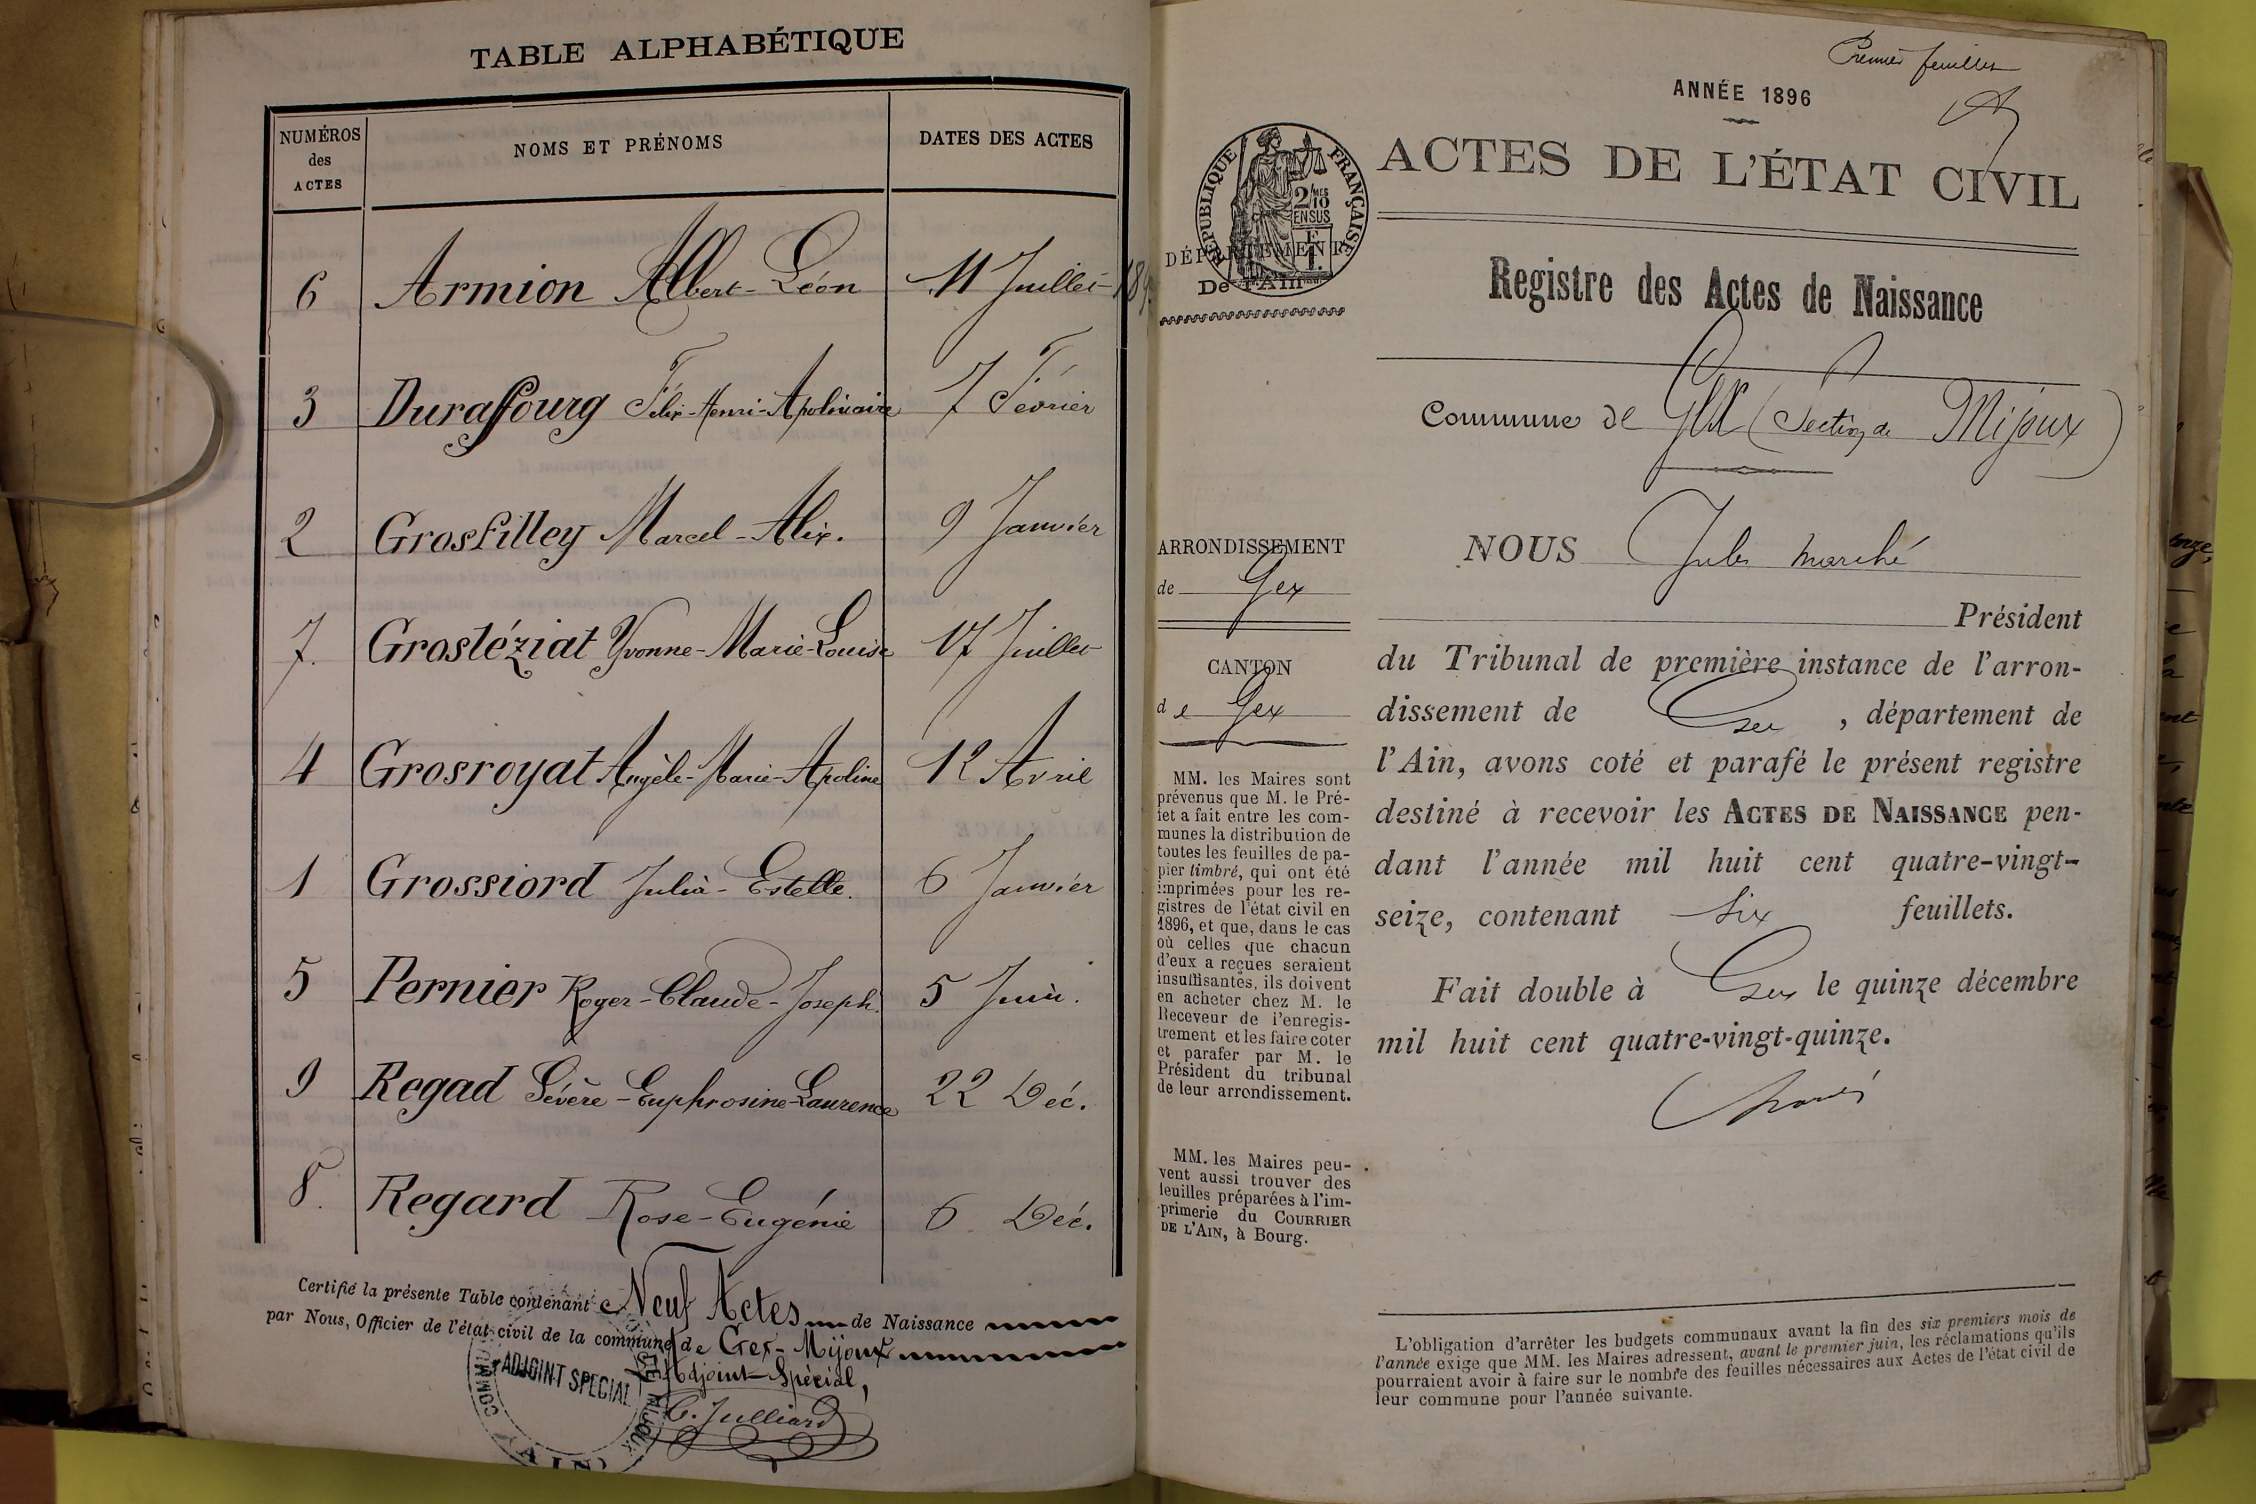 TABLE ALPHABÉTIQUE
NUMÉROS des ACTES
NOMS ET PRÉNOMS
DATES DES ACTES
6 Armion Albert-Léon 11 Juillet
3 Duraffourg Félix-Henri-Apolinaire 7 Février
2 Grosfilley Marcel-Alix. 9 Janvier
7. Grosléziat Yvonne-Marie-Louise 17 Juillet
4 Grosroyat Angèle-Marie-Apoline 12 Avril
1 Grossiord Julia-Estelle. 6 Janvier
5 Pernier Roger-Claude-Joseph. 5 Juin.
9 Regad Sévère-Euphrosine-Laurence 22 Déc.
8. Regard Rose-Eugénie 6 Déc.
Certifié la présente Table contenant Neuf Actes de Naissance
par Nous, Officier de l'état civil de la commune de Gex-Mijoux
Adjoint Spécial,
C. Julliard
ADJOINT SPECIAL
DE MIJOUX
(AIN)
Premier feuillet
ANNÉE 1896
ACTES DE L'ÉTAT CIVIL
RÉPUBLIQUE FRANÇAISE
2/10 MES
EN SUS
DÉPARTEMENT
De l'Ain
Registre des Actes de Naissance
Commune de Gex (Section de Mijoux)
ARRONDISSEMENT
de Gex
CANTON
de Gex
MM. les Maires sont
prévenus que M. le Pré-
fet a fait entre les com-
munes la distribution de
toutes les feuilles de pa-
pier timbré, qui ont été
imprimées pour les re-
gistres de l'état civil en
1896, et que, dans le cas
où celles que chacun
d'eux a reçues seraient
insuffisantes, ils doivent
en acheter chez M. le
Receveur de l'enregis-
trement et les faire coter
et parafer par M. le
Président du tribunal
de leur arrondissement.
MM. les Maires peu-
vent aussi trouver des
feuilles préparées à l'im-
primerie du COURRIER
DE L'AIN, à Bourg.
NOUS Jules Marché
Président
du Tribunal de première instance de l'arron-
dissement de Gex, département de
l'Ain, avons coté et parafé le présent registre
destiné à recevoir les ACTES DE NAISSANCE pen-
dant l'année mil huit cent quatre-vingt-
seize, contenant six feuillets.
Fait double à Gex le quinze décembre
mil huit cent quatre-vingt-quinze.
L'obligation d'arrêter les budgets communaux avant la fin des six premiers mois de
l'année exige que MM. les Maires adressent, avant le premier juin, les réclamations qu'ils
pourraient avoir à faire sur le nombre des feuilles nécessaires aux Actes de l'état civil de
leur commune pour l'année suivante.